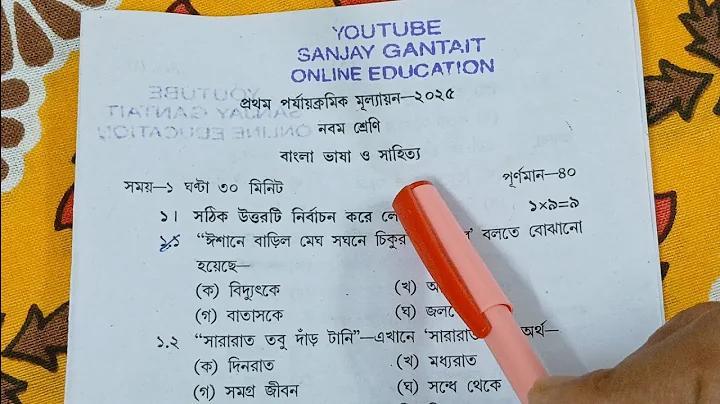 YOUTUBE
SANJAY GANTAIT
ONLINE EDUCATION
প্রথম পর্যায়ক্রমিক মূল্যায়ন—২০২৫
নবম শ্রেণি
বাংলা ভাষা ও সাহিত্য
সময়—১ ঘণ্টা ৩০ মিনিট পূর্ণমান—৪০
১। সঠিক উত্তরটি নির্বাচন করে ১×৯=৯
১.১ “ঈশানে বাড়িল মেঘ সঘনে চিকুর বলতে বোঝানো
হয়েছে—
(ক) বিদ্যুৎকে (খ)
(গ) বাতাসকে (ঘ)
১.২ “সারারাত তবু দাঁড় টানি”—এখানে ‘সারারাত অর্থ—
(ক) দিনরাত (খ) মধ্যরাত
(গ) সমগ্র জীবন (ঘ) সন্ধে থেকে